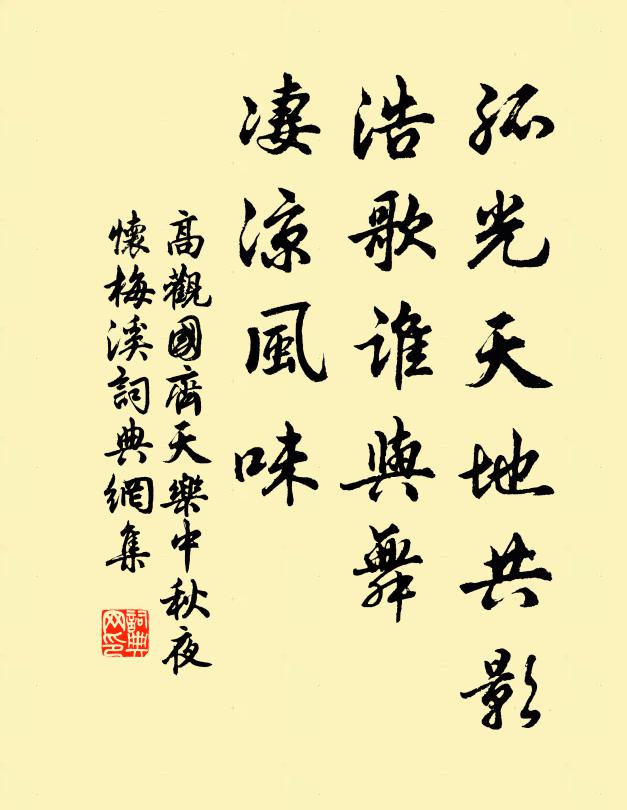 孤光天地共影
浩歌誰與舞
凄涼風味
高觀國齊天樂中秋夜
懷梅溪詞典網集
詞典
网印